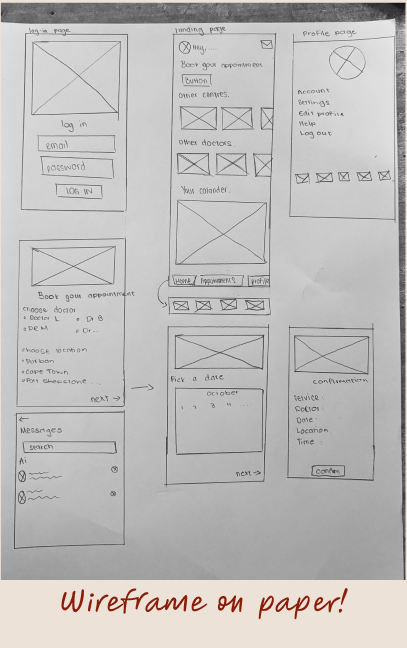 log-in page
log in
email
password
LOG IN
landing page
Hey, ...
Book your appointment
Button
Other centres.
Other doctors
Your calander.
Home
Appointments
Profile
Profile page
Account
Settings
Edit profile
Help
Log out
Book your appointment
choose doctor
Doctor L
Dr B
DR M
Dr...
choose location
Durban
Cape Town
Port Shepstone ...
next →
← 
Messages
search
All
Pick a date
October
1 2 3 4 ...
next →
confirmation
Service :
Doctor :
Date :
Location :
Time :
confirm
Wireframe on paper!